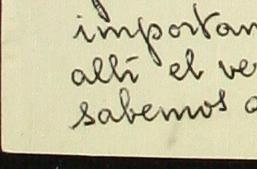 importan
allí el ve
sabemos a